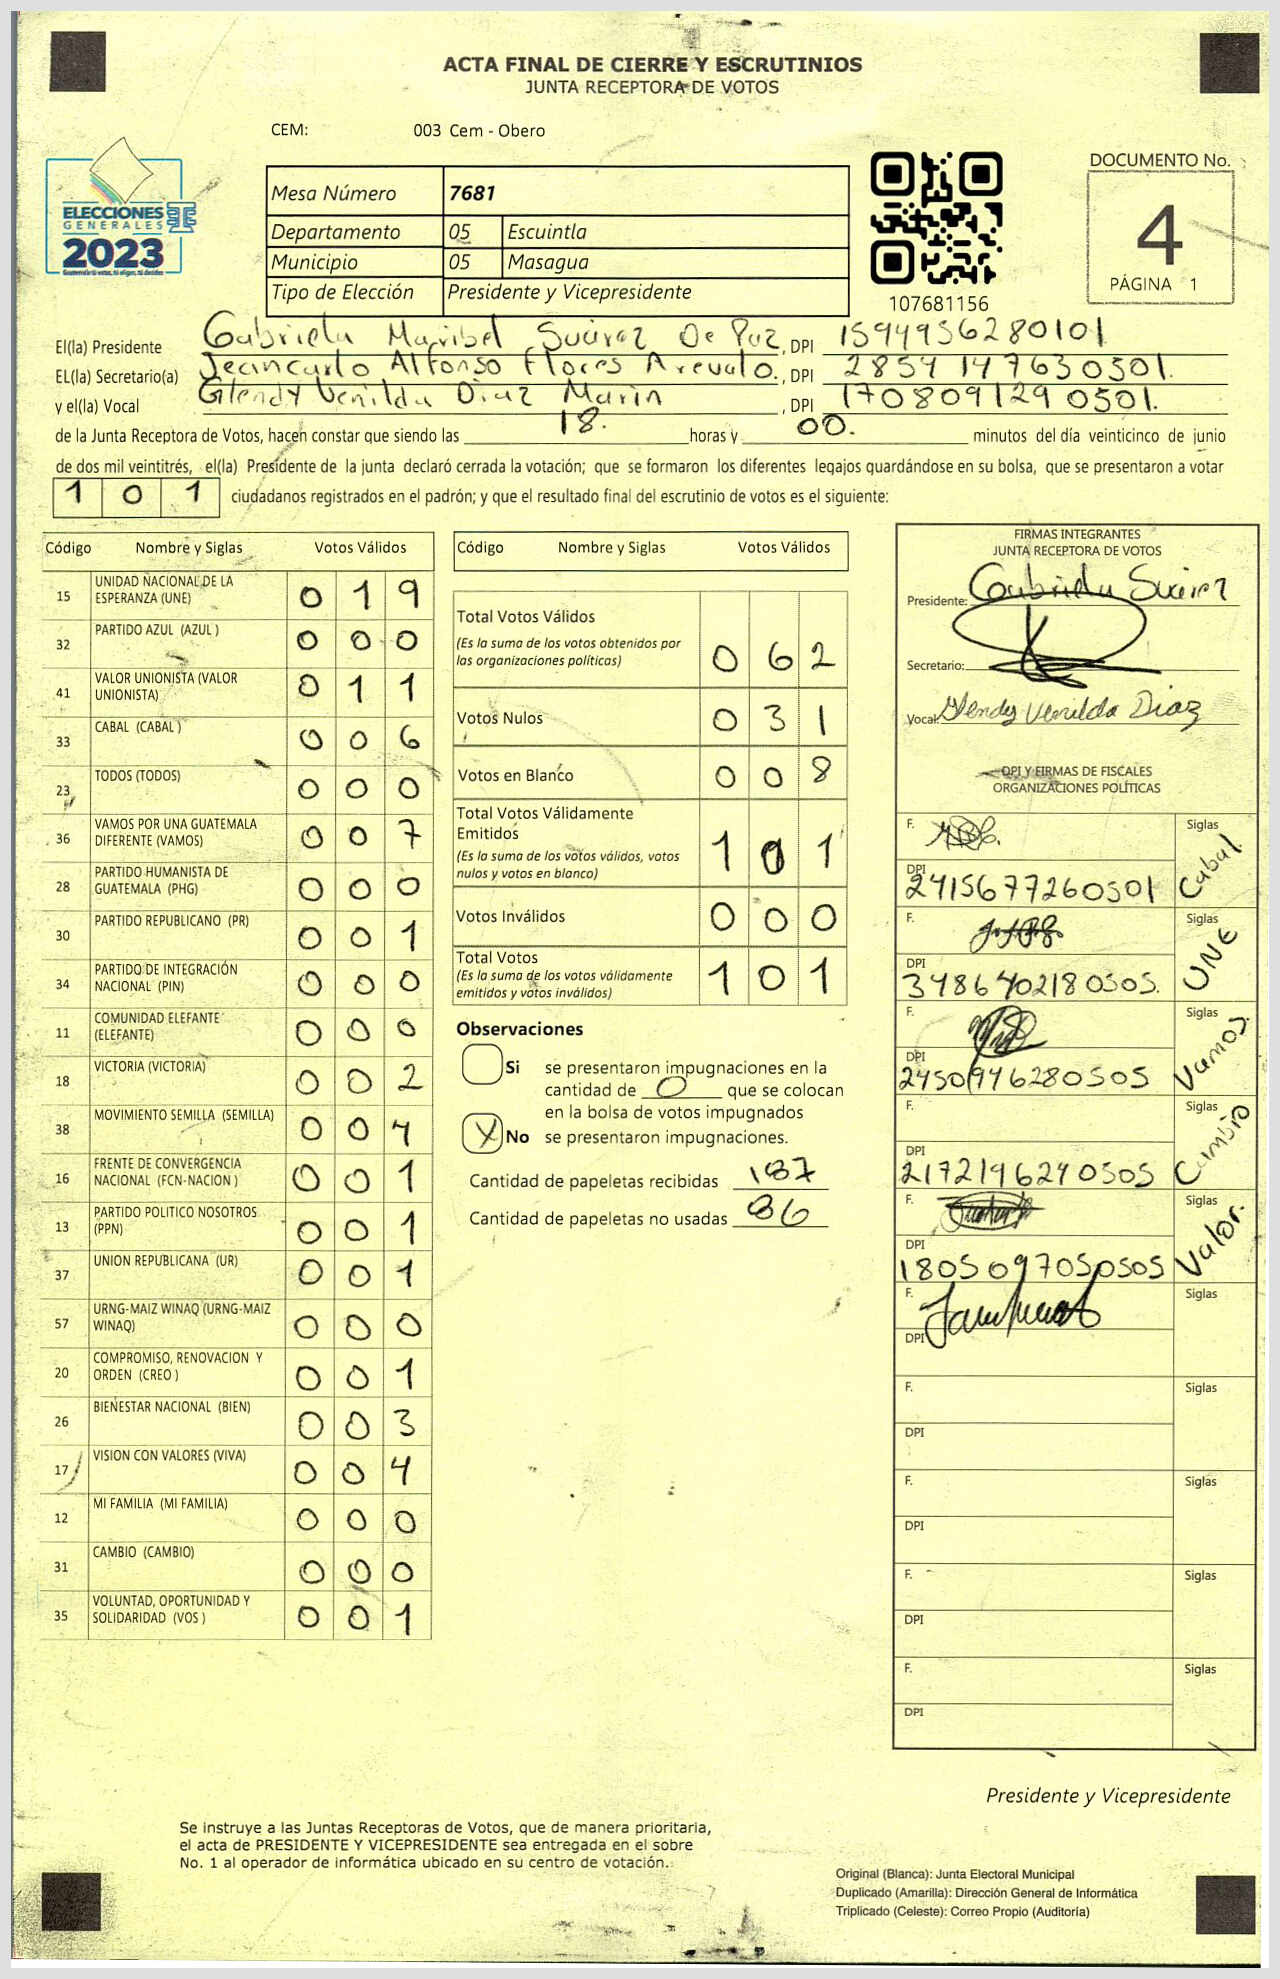 ACTA FINAL DE CIERRE Y ESCRUTINIOS
JUNTA RECEPTORA DE VOTOS
CEM: 003 Cem - Obero
ELECCIONES
GENERALES
2023
Mesa Número 7681
Departamento 05 Escuintla
Municipio 05 Masagua
Tipo de Elección Presidente y Vicepresidente
107681156
DOCUMENTO No.
4
PÁGINA 1
El(la) Presidente Gabriela Maribel Suárez De Paz, DPI 1594956280101
EL(la) Secretario(a) Jeancarlo Alfonso Flores Arevalo., DPI 2854147630501.
y el(la) Vocal Glendy Venilda Diaz Marin, DPI 1708091290501.
de la Junta Receptora de Votos, hacen constar que siendo las 18. horas y 00. minutos del día veinticinco de junio
de dos mil veintitrés, el(la) Presidente de la junta declaró cerrada la votación; que se formaron los diferentes legajos guardándose en su bolsa, que se presentaron a votar
1 0 1 ciudadanos registrados en el padrón; y que el resultado final del escrutinio de votos es el siguiente:
Código Nombre y Siglas Votos Válidos
15 UNIDAD NACIONAL DE LA ESPERANZA (UNE) 0 1 9
32 PARTIDO AZUL (AZUL ) 0 0 0
41 VALOR UNIONISTA (VALOR UNIONISTA) 0 1 1
33 CABAL (CABAL ) 0 0 6
23 TODOS (TODOS) 0 0 0
36 VAMOS POR UNA GUATEMALA DIFERENTE (VAMOS) 0 0 7
28 PARTIDO HUMANISTA DE GUATEMALA (PHG) 0 0 0
30 PARTIDO REPUBLICANO (PR) 0 0 1
34 PARTIDO DE INTEGRACIÓN NACIONAL (PIN) 0 0 0
11 COMUNIDAD ELEFANTE (ELEFANTE) 0 0 0
18 VICTORIA (VICTORIA) 0 0 2
38 MOVIMIENTO SEMILLA (SEMILLA) 0 0 4
16 FRENTE DE CONVERGENCIA NACIONAL (FCN-NACION ) 0 0 1
13 PARTIDO POLITICO NOSOTROS (PPN) 0 0 1
37 UNION REPUBLICANA (UR) 0 0 1
57 URNG-MAIZ WINAQ (URNG-MAIZ WINAQ) 0 0 0
20 COMPROMISO, RENOVACION Y ORDEN (CREO ) 0 0 1
26 BIENESTAR NACIONAL (BIEN) 0 0 3
17 VISION CON VALORES (VIVA) 0 0 4
12 MI FAMILIA (MI FAMILIA) 0 0 0
31 CAMBIO (CAMBIO) 0 0 0
35 VOLUNTAD, OPORTUNIDAD Y SOLIDARIDAD (VOS ) 0 0 1
Código Nombre y Siglas Votos Válidos
Total Votos Válidos
(Es la suma de los votos obtenidos por las organizaciones políticas) 0 6 2
Votos Nulos 0 3 1
Votos en Blanco 0 0 8
Total Votos Válidamente Emitidos
(Es la suma de los votos válidos, votos nulos y votos en blanco) 1 0 1
Votos Inválidos 0 0 0
Total Votos
(Es la suma de los votos válidamente emitidos y votos inválidos) 1 0 1
Observaciones
Si se presentaron impugnaciones en la
cantidad de 0 que se colocan
en la bolsa de votos impugnados
X No se presentaron impugnaciones.
Cantidad de papeletas recibidas 187
Cantidad de papeletas no usadas 86
FIRMAS INTEGRANTES
JUNTA RECEPTORA DE VOTOS
Presidente: Gabriela Suárez
Secretario:
Vocal: Glendy Venilda Diaz
DPI Y FIRMAS DE FISCALES
ORGANIZACIONES POLÍTICAS
F. Siglas Cabal
DPI 2415677260501
F. Siglas UNE
DPI 3486402180505.
F. Siglas Vamos.
DPI 2450946280505
F. Siglas Cambio
DPI 2172196240505
F. Siglas Valor.
DPI 1805097050505
F. Siglas
DPI
F. Siglas
DPI
F. Siglas
DPI
F. Siglas
DPI
F. Siglas
DPI
Presidente y Vicepresidente
Se instruye a las Juntas Receptoras de Votos, que de manera prioritaria,
el acta de PRESIDENTE Y VICEPRESIDENTE sea entregada en el sobre
No. 1 al operador de informática ubicado en su centro de votación.
Original (Blanca): Junta Electoral Municipal
Duplicado (Amarilla): Dirección General de Informática
Triplicado (Celeste): Correo Propio (Auditoría)